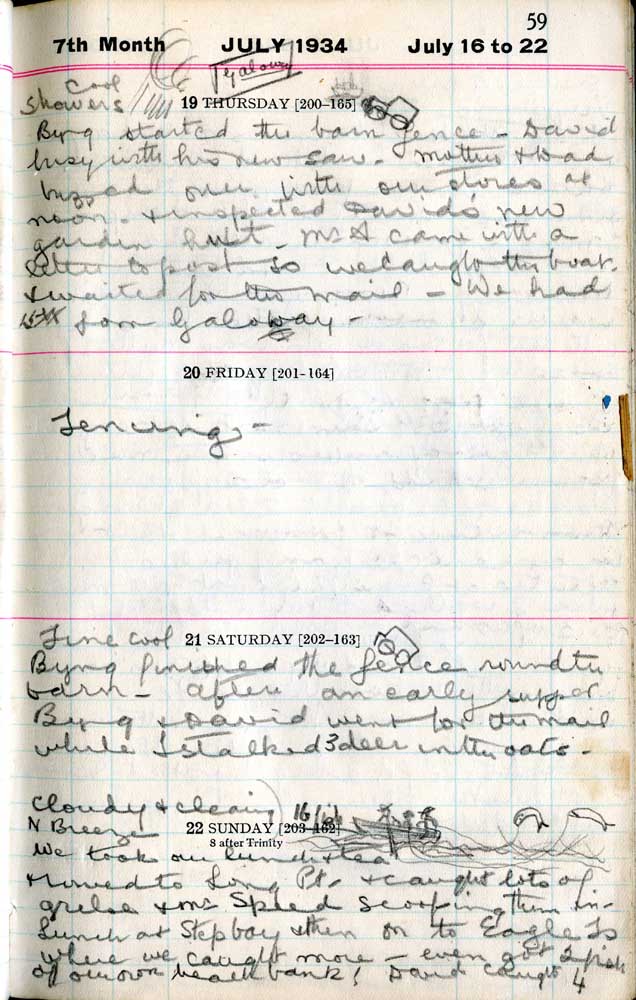 59
7th Month JULY 1934 July 16 to 22
Galoway
Cool
Showers
19 THURSDAY [200–165]
Byng started the barn fence – David
busy with his new saw – Mother & Dad
buzzed over with our stores at
noon – & inspected David's new
garden hut – Mr A came with a
letter to post so we caught the boat
& waited for the mail – We had
from Galoway –
20 FRIDAY [201-164]
Fencing –
Fine cool 21 SATURDAY [202–163]
Byng finished the fence round the
barn – after an early supper
Byng & David went for the mail
while I stalked 3 deer in the oats –
Cloudy & clearing 16 lb
N Breeze 22 SUNDAY [203–162]
8 after Trinity
We took our lunch & tea
& rowed to Long Pt. & caught lots of
grelse & Mr Speed scooping them in –
Lunch at Step bay & then on to Eagle Is
where we caught more – even got 2 fish
of our own beach bank! David caught 4